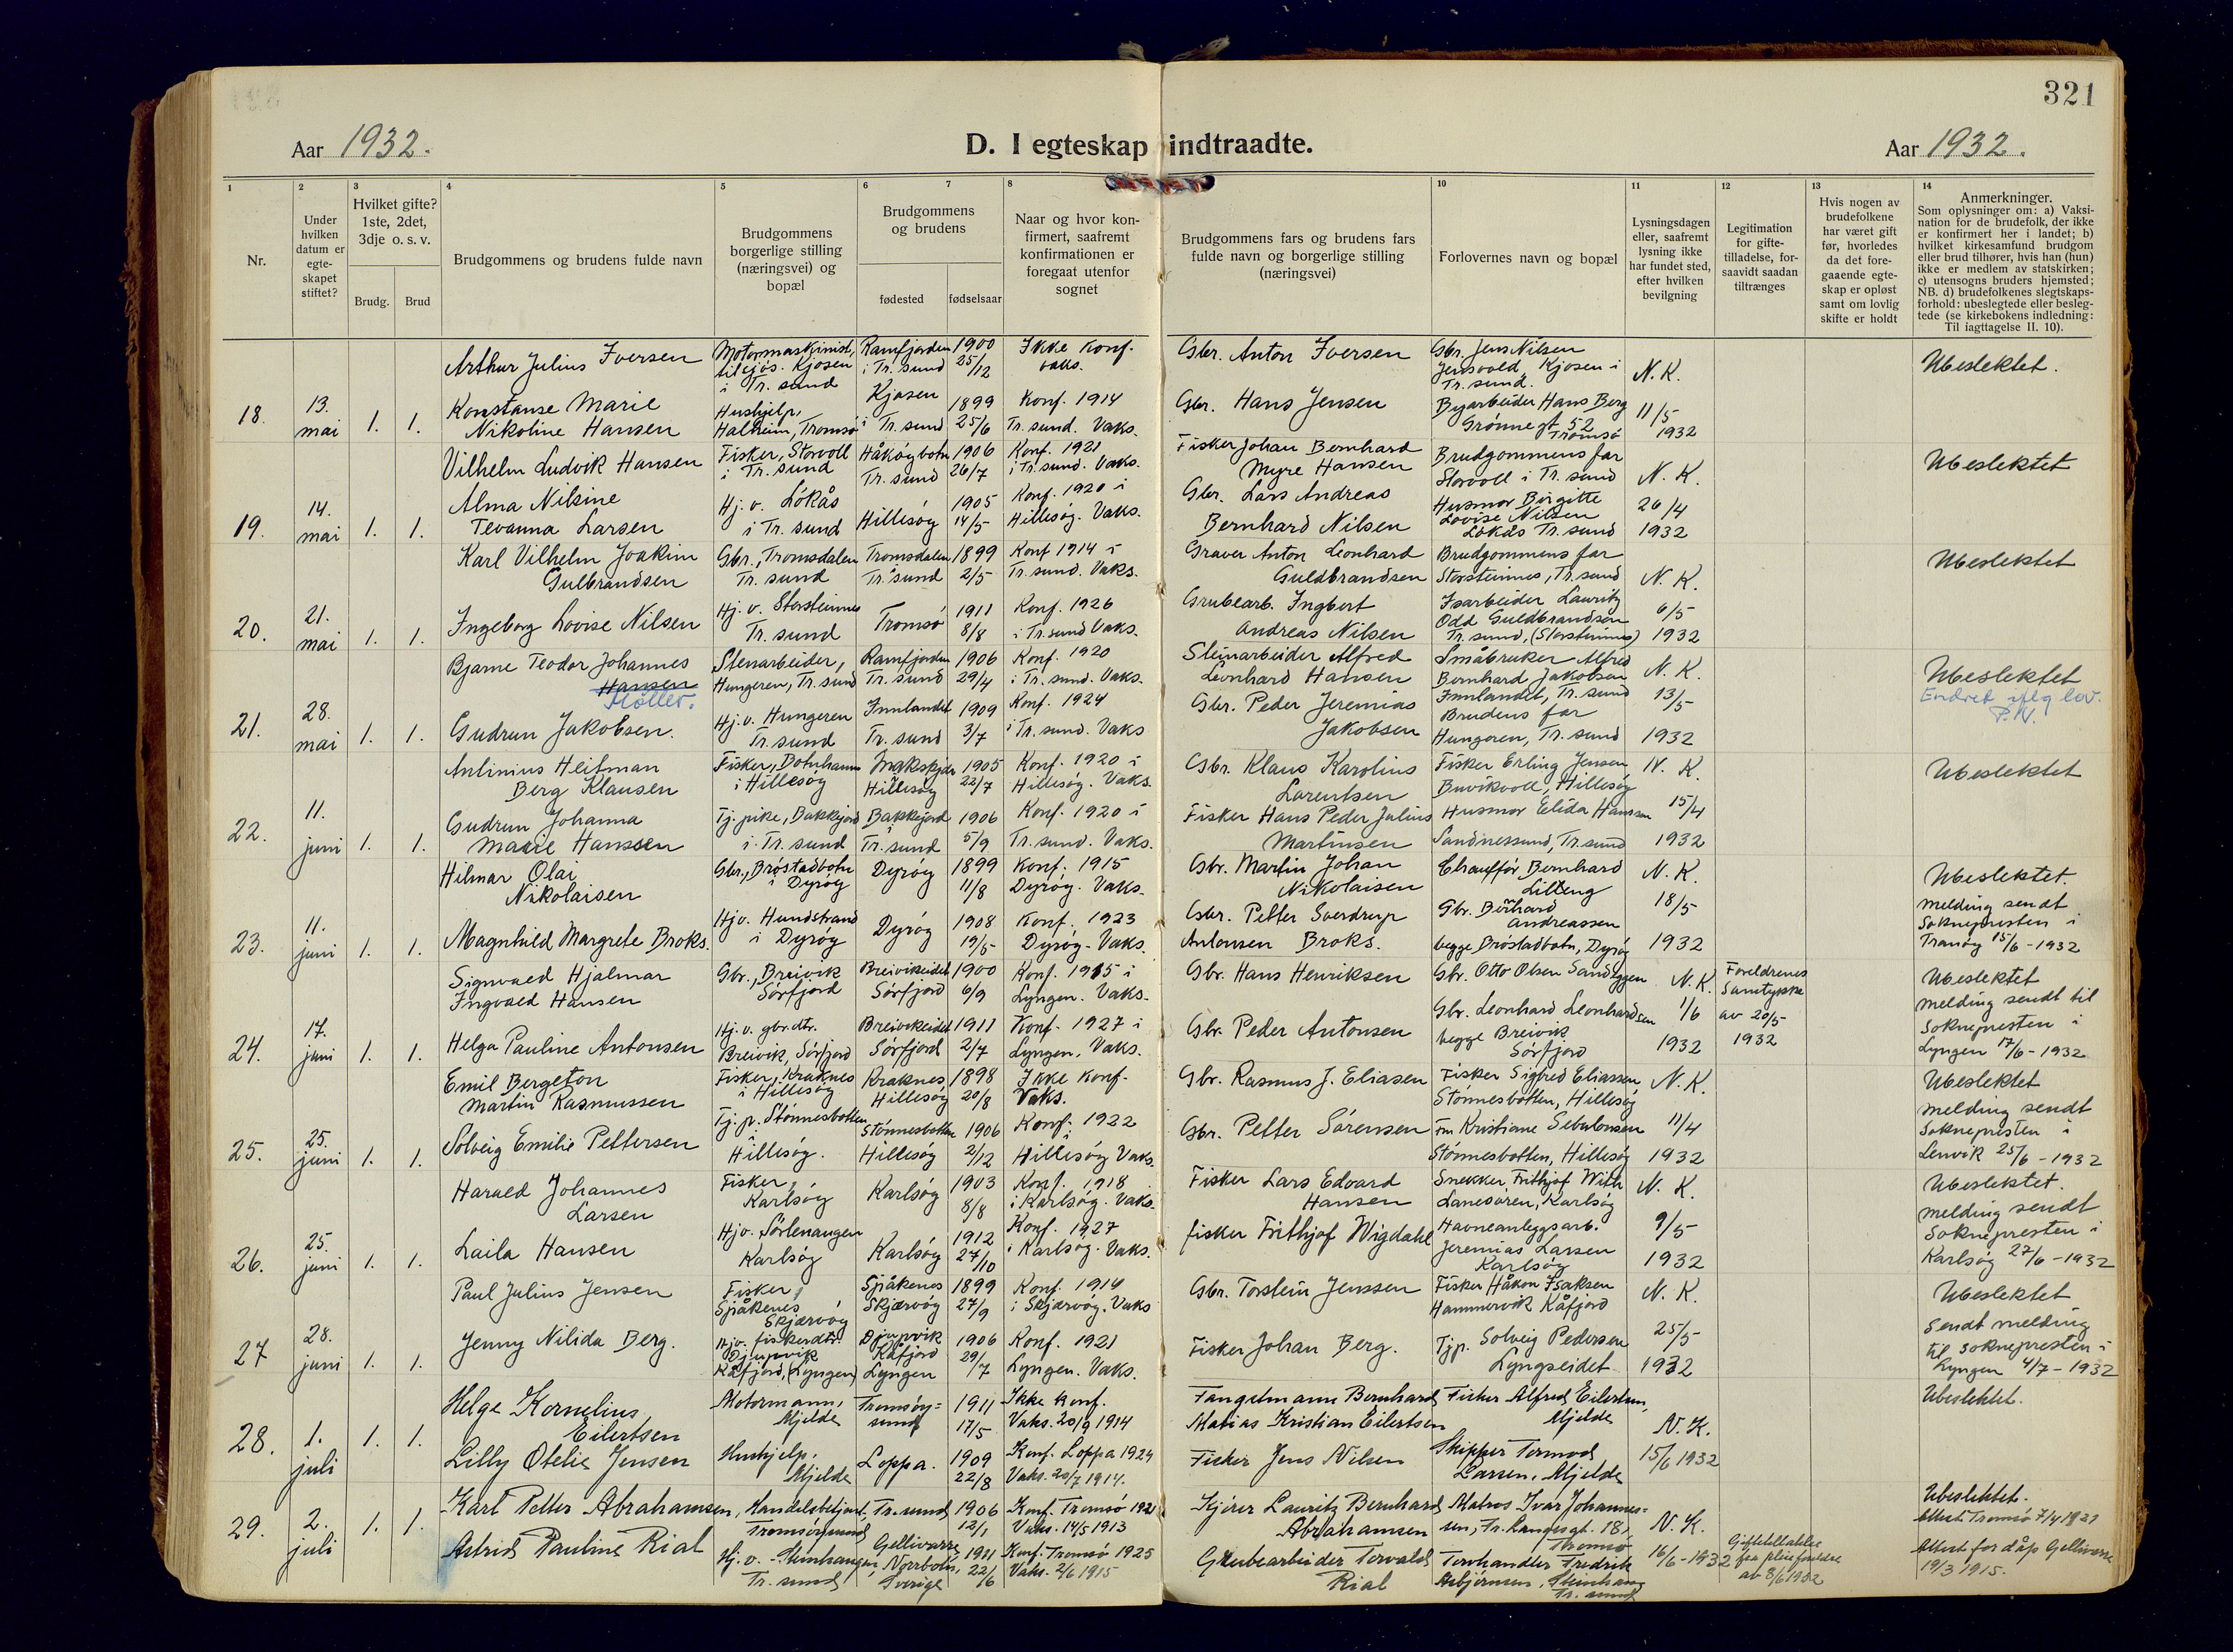 321
Aar 1932.
D. I egteskap indtraadte.
Aar 1932.
1 2 3 4 5 6 7 8 10 11 12 13 14
Nr.
Under
hvilken
datum er
egte-
skapet
stiftet?
Hvilket gifte?
1ste, 2det,
3dje o. s. v.
Brudg. Brud
Brudgommens og brudens fulde navn
Brudgommens
borgerlige stilling
(næringsvei) og
bopæl
Brudgommens
og brudens
fødested fødselsaar
Naar og hvor kon-
firmert, saafremt
konfirmationen er
foregaat utenfor
sognet
Brudgommens fars og brudens fars
fulde navn og borgerlige stilling
(næringsvei)
Forlovernes navn og bopæl
Lysningsdagen
eller, saafremt
lysning ikke
har fundet sted,
efter hvilken
bevilgning
Legitimation
for gifte-
tilladelse, for-
saavidt saadan
tiltrænges
Hvis nogen av
brudefolkene
har været gift
før, hvorledes
da det fore-
gaaende egte-
skap er opløst
samt om lovlig
skifte er holdt
Anmerkninger.
Som oplysninger om: a) Vaksi-
nation for de brudefolk, der ikke
er konfirmert her i landet; b)
hvilket kirkesamfund brudgom
eller brud tilhører, hvis han (hun)
ikke er medlem av statskirken;
c) utensogns bruders hjemsted;
NB. d) brudefolkenes slegtskaps-
forhold: ubeslegtede eller besleg-
tede (se kirkebokens indledning:
Til iagttagelse II. 10).
18. 13. mai 1. 1.
Arthur Julius Iversen
Motormaskinist,
Kjosen
i Tr. sund
Ramfjorden 1900
i Tr. sund 25/12
Ikke konf.
vaks.
Gbr. Anton Iversen
Gbr. Jens Nilsen
Jensvold, Kjosen i
Tr. sund.
N. K.
Ubeslektet.
Konstanse Marie
Nikoline Hansen
Hushjelp,
Halheim, Tromsø
Kjosen 1899
i Tr. sund 25/6
Konf. 1914
Tr. sund. Vaks.
Gbr. Hans Jensen
Byarbeider Hans Berg
Grønne gt. 52
Tromsø
11/5
1932
19. 14. mai 1. 1.
Vilhelm Ludvik Hansen
Fisker, Storvoll
i Tr. sund
Håkøybotn 1906
Tr. sund 26/7
Konf. 1921
i Tr. sund. Vaks.
Fisker Johan Bernhard
Myre Hansen
Brudgommens far
Storvoll i Tr. sund
N. K.
Ubeslektet
Alma Nilsine
Tevanna Larsen
Hj. v. Løkås
i Tr. sund
1905
Hillesøy 14/5
Konf. 1920 i
Hillesøy. Vaks.
Gbr. Lars Andreas
Bernhard Nilsen
Husmor Birgitte
Lovise Nilsen
Løkås Tr. sund
26/4
1932
20. 21. mai 1. 1.
Karl Vilhelm Joakim
Gulbrandsen
Gbr., Tromsdalen
Tr. sund
Tromsdalen 1899
Tr. sund 2/5
Konf 1914 i
Tr. sund. Vaks.
Graver Anton Leonhard
Guldbrandsen
Brudgommens far
Storsteinnes, Tr. sund
N. K.
Ubeslektet
Ingeborg Lovise Nilsen
Hj. v. Storsteinnes
Tr. sund
Tromsø 1911
8/8
Konf. 1926
i Tr. sund Vaks.
Grubearb. Ingbert
Andreas Nilsen
Isarbeider Lauritz
Odd Guldbrandsen
Tr. sund, (Storsteinnes)
6/5
1932
21. 28. mai 1. 1.
Bjarne Teodor Johannes
Hansen
Møller.
Stenarbeider,
Hungeren, Tr. sund
Ramfjorden 1906
Tr. sund 29/4
Konf. 1920
i Tr. sund. Vaks.
Steinarbeider Alfred
Leonhard Hansen
Småbruker Alfred
Bernhard Jakobsen
Innlandet, Tr. sund
N. K.
Ubeslektet
Endret iflg lov.
Gudrun Jakobsen.
Hj. v. Hungeren
Tr. sund
Innlandet 1909
Tr. sund 3/7
Konf. 1924
i Tr. sund. Vaks
Gbr. Peder Jeremias
Jakobsen
Brudens far
Hungeren, Tr. sund
13/5
1932
22. 11. juni 1. 1.
Antinius Heitman
Berg Klausen
Fisker, Botnhamn
i Hillesøy
1905
Hillesøy 22/7
Konf. 1920 i
Hillesøy. Vaks.
Gbr. Klaus Karolius
Larentsen
Fisker Erling Jensen
Buvikvoll, Hillesøy
N. K.
Ubeslektet
Gudrun Johanna
Marie Hanssen
Tj. pike, Bakkejord
i Tr. sund
Bakkejord 1906
Tr. sund 5/9
Konf. 1920 i
Tr. sund. Vaks.
Fisker Hans Peder Julius
Martinsen
Husmor Elida Hanssen
Sandnessund, Tr. sund
15/4
1932
23. 11. juni 1. 1.
Hilmar Olai
Nikolaisen
Gbr., Brøstadbotn
i Dyrøy
Dyrøy 1899
11/8
Konf. 1915
Dyrøy. Vaks.
Gbr. Martin Johan
Nikolaisen
Chauffør Bernhard
Lilleng
N. K.
Ubeslektet.
melding sendt
Soknepresten i
Tranøy 15/6 - 1932
Magnhild Margrete Broks.
Hjv. Hundstrand
i Dyrøy
Dyrøy 1908
19/5
Konf. 1923
Dyrøy. Vaks.
Gbr. Petter Sverdrup
Antonsen Broks.
Gbr. Bernhard
Andreassen
begge Brøstadbotn, Dyrøy
18/5
1932
24. 17. juni 1. 1.
Sigvald Hjalmar
Ingvald Hansen
Gbr., Breivik
Sørfjord
Breivikeidet 1900
Sørfjord 6/9
Konf. 1915 i
Lyngen. Vaks.
Gbr. Hans Henriksen
Gbr. Otto Olsen Sandeggen
N. K.
Foreldrenes
Samtykke
av 20/5
1932
Ubeslektet
melding sendt til
Soknepresten i
Lyngen 17/6 - 1932
Helga Pauline Antonsen
Hj. v. gbr. dtr.
Breivik, Sørfjord
Breivikeidet 1911
Sørfjord 2/7
Konf. 1927 i
Lyngen. Vaks.
Gbr. Peder Antonsen
Gbr. Leonhard Leonhardsen
begge Breivik
Sørfjord
1/6
1932
25. 25. juni 1. 1.
Emil Bergeton
Martin Rasmussen
Fisker, Kraknes
i Hillesøy
Kraknes, 1898
Hillesøy 20/8
Ikke konf.
Vaks.
Gbr. Rasmus J. Eliasen
Fisker Sigfred Eliassen
Stønnesbotten, Hillesøy
N. K.
Ubeslektet
melding sendt
Soknepresten i
Lenvik 25/6 - 1932
Solveig Emilie Pettersen
Tj. p. Stønnesbotten
i
Hillesøy.
Stønnesbotten 1906
Hillesøy 2/12
Konf. 1922
i
Hillesøy Vaks.
Gbr. Petter Sørensen
Fru Kristiane Sebulonsen
Stønnesbotten, Hillesøy
11/4
1932
26. 25. juni 1. 1.
Harald Johannes
Larsen
Fisker,
Karlsøy
Karlsøy 1903
8/8
Konf. 1918
i Karlsøy. Vaks.
Fisker Lars Edvard
Hansen
Snekker Frithjof With
Lanesøren, Karlsøy
N. K.
Ubeslektet.
melding sendt
Soknepresten i
Karlsøy 27/6 - 1932
Laila Hansen
Hjv. Sørlenangen
Karlsøy
Karlsøy 1912
27/10
Konf. 1927
i Karlsøy. Vaks.
fisker Frithjof Wigdahl
Havneanleggsarb.
Jeremias Larsen
Karlsøy
9/5
1932
27 28. juni 1. 1.
Paul Julius Jensen
Fisker,
Spåkenes
Skjærvøy
Spåkenes 1899
Skjærvøy 27/9
Konf. 1914
i Skjærvøy. Vaks
Gbr. Torstein Jenssen
Fisker Håkon Isaksen
Hammervik Kåfjord
N. K.
Ubeslektet
Sendt melding
til soknepresten i
Lyngen 4/7 - 1932
Jenny Nilida Berg.
Hjv. fiskerdtr.
Djupvik
Kåfjord, (Lyngen)
Djupvik 1906
Kåfjord 29/7
Lyngen
Konf. 1921
Lyngen. Vaks.
Fisker Johan Berg.
Tjp. Solveig Pedersen
Lyngseidet
25/5
1932
28. 1. juli 1. 1.
Helge Kornelius
Eilertsen
Motormann,
Mjelde
Tromsøy-
sund 1911
17/5
Ikke konf.
Vaks. 20/9 1914
Fangstmann Bernhard
Matias Kristian Eilertsen
Fisker Alfred Eilertsen,
Mjelde
N. K.
Ubeslektet.
Lilly Otelie Jensen
Hushjelp,
Mjelde
Loppa. 1909
22/8
Konf. Loppa 1924
Vaks. 20/7 1914.
Fisker Jens Nilsen
Skipper Tormod
Larsen, Mjelde
15/6 1932
29. 2. juli 1. 1.
Karl Petter Abrahamsen,
Handelsbetjent,
Tromsøysund
Tr. sund 1906
12/1
Konf. Tromsø 1921
Vaks. 14/5 1913
Kjører Lauritz Bernhard
Abrahamsen
Matros Ivar Johannes-
sen, Fr. Langesgt. 18,
Tromsø
N. K.
Ubeslektet.
Attest Tromsø 7/4 1931
Astrid Pauline Rial
Hj. v. Steinhaugen,
Tr. sund
Gellivarre, 1911
Norrbotn, 22/6
Sverige
Konf. Tromsø 1925
Vaks. 2/6 1915
Grubearbeider Torvald
Rial
Torvhandler Fredrik
Asbjørnsen, Steinhaug
Tr. sund
16/6 - 1932
Giftetillatelse
fra pleieforeldre
av 8/6 1932
Attest for dåp Gellivarre
19/3 1915.